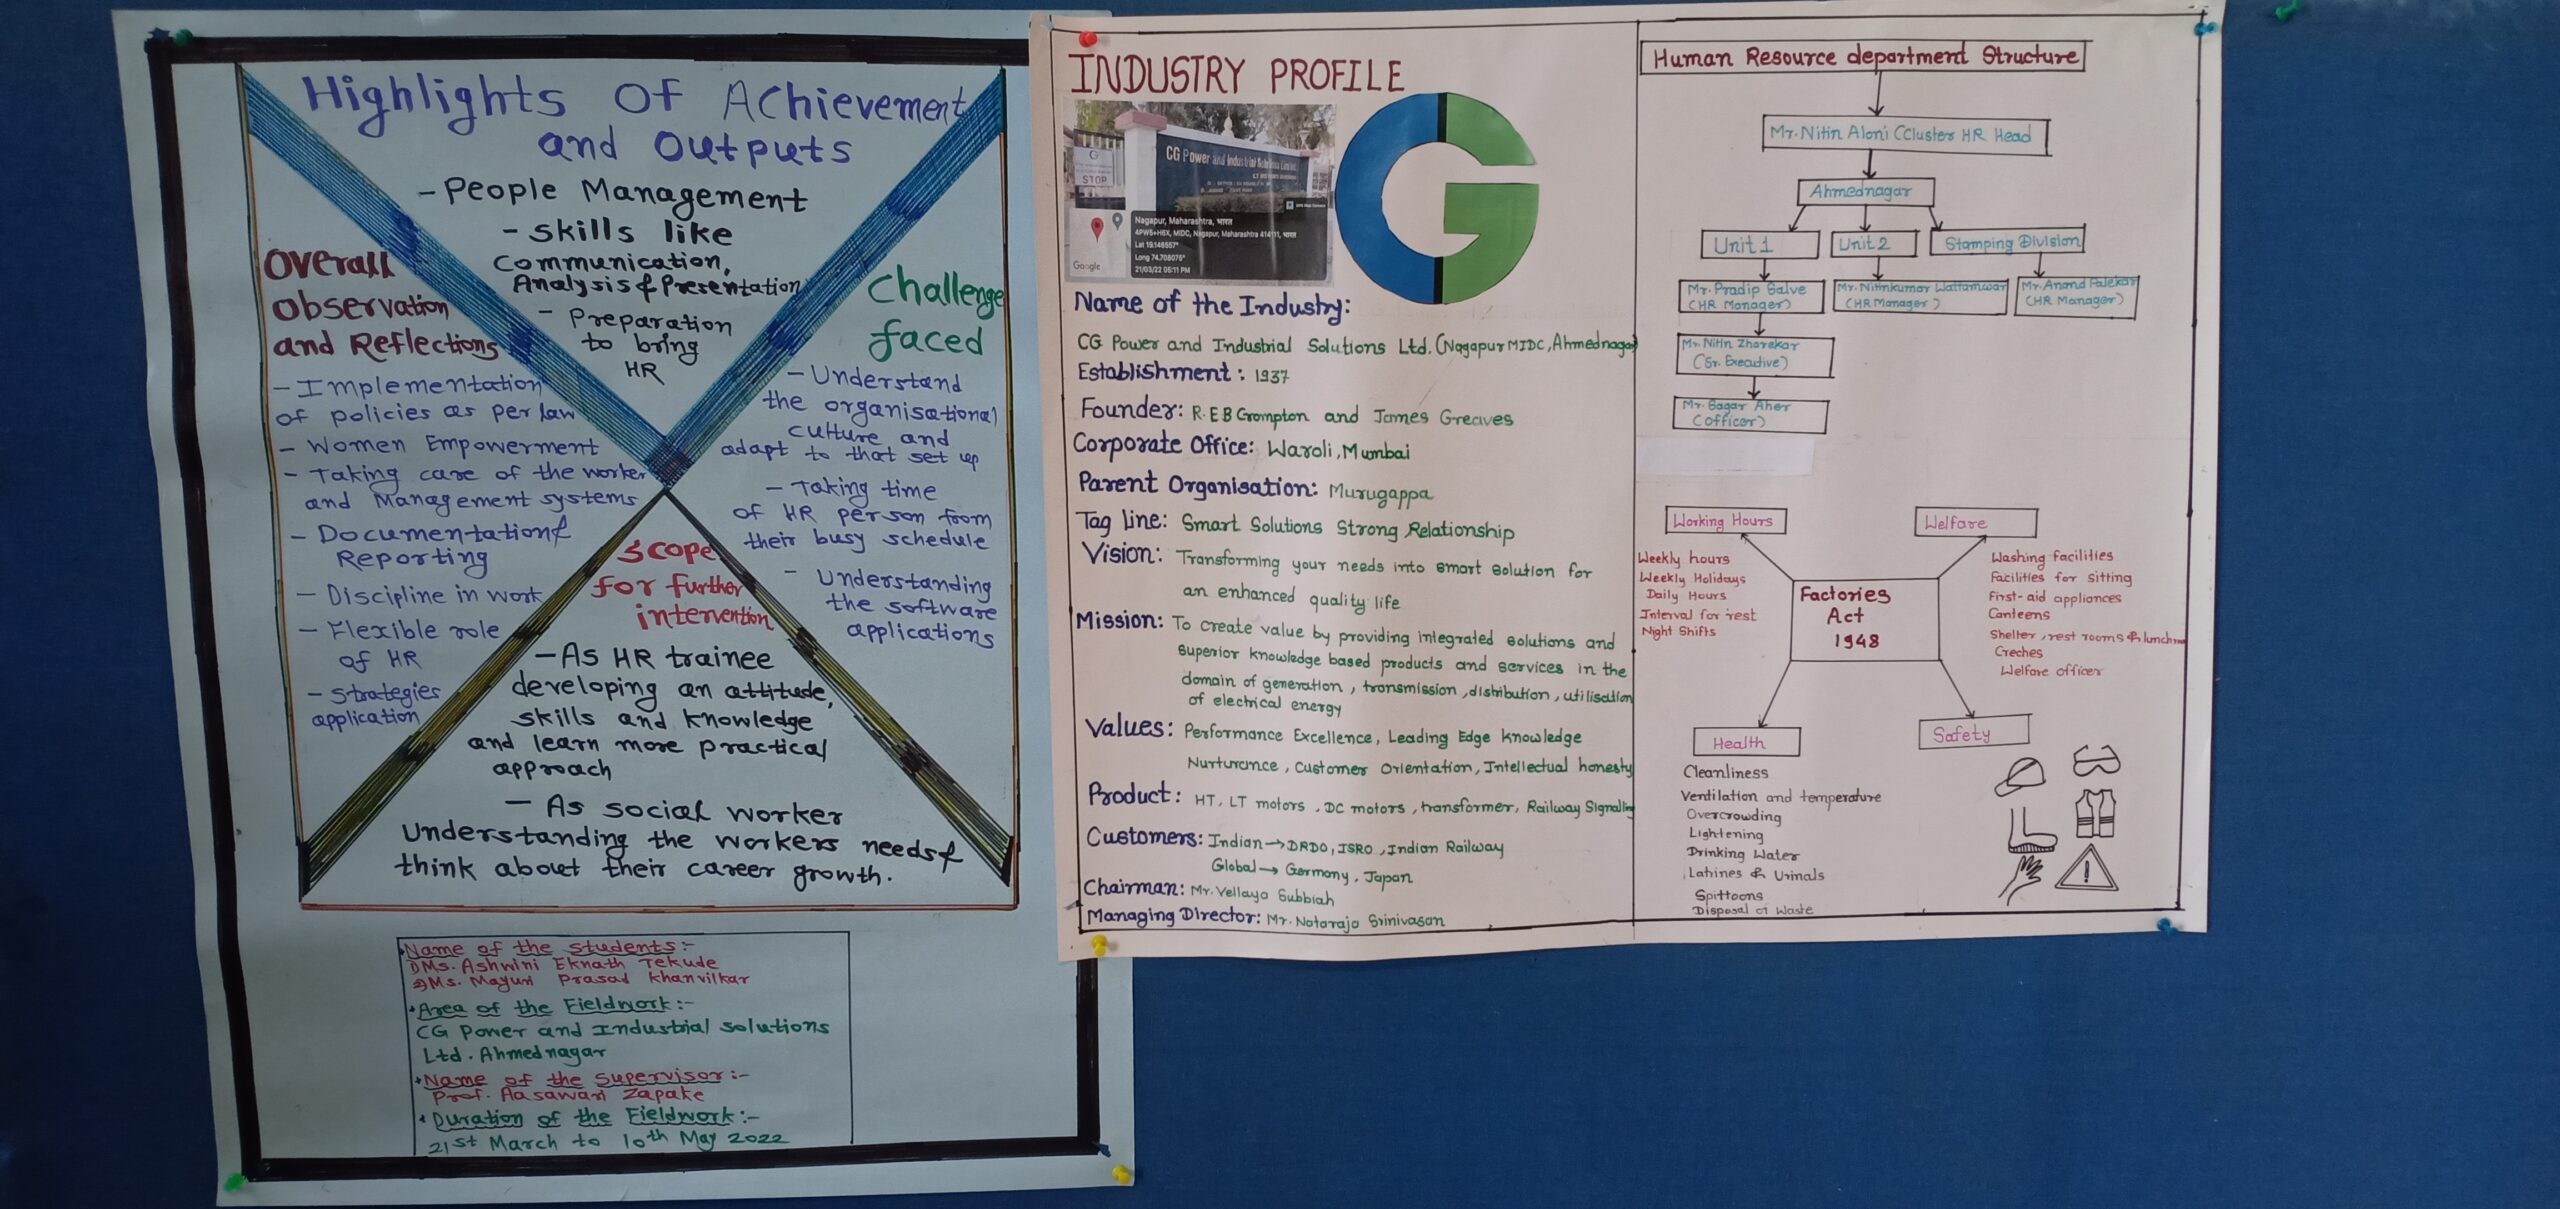 Highlights Of Achievement
and Outputs
- People Management
- skills like
communication,
Analysis & Presentation
- Preparation
to bring
HR
Overall
observation
and Reflections
- Implementation
of policies as per law
- Women Empowerment
- Taking care of the worker
and Management systems
- Documentation &
Reporting
- Discipline in work
- Flexible role
of HR
- Strategies
application
Challenge
faced
- Understand
the organisational
culture and
adapt to that set up
- Taking time
of HR person from
their busy schedule
- Understanding
the software
applications
Scope
for further
intervention
- As HR trainee
developing an attitude,
skills and knowledge
and learn more practical
approach
- As social worker
Understanding the workers needs &
think about their career growth.
Name of the students:-
1) Ms. Ashwini Eknath Tekude
2) Ms. Mayuri Prasad Khanvilkar
Area of the Fieldwork:-
CG Power and Industrial Solutions
Ltd. Ahmednagar
Name of the Supervisor:-
Prof. Aasawari Zapake
Duration of the Fieldwork:-
21st March to 10th May 2022
INDUSTRY PROFILE
CG Power and Industrial Solutions Limited
STOP
Nagapur, Maharashtra, भारत
4PW5+H5X, MIDC, Nagapur, Maharashtra 414111, भारत
Lat 19.146557°
Long 74.708075°
21/03/22 05:11 PM
Google
Name of the Industry:
CG Power and Industrial Solutions Ltd. (Nagapur MIDC, Ahmednagar)
Establishment: 1937
Founder: R.E B Crompton and James Greaves
Corporate Office: Waroli, Mumbai
Parent Organisation: Murugappa
Tag line: Smart Solutions Strong Relationship
Vision: Transforming your needs into smart solution for
an enhanced quality life
Mission: To create value by providing integrated solutions and
superior knowledge based products and services in the
domain of generation, transmission, distribution, utilisation
of electrical energy
Values: Performance Excellence, Leading Edge Knowledge
Nurturance, Customer Orientation, Intellectual honesty
Product: HT, LT motors, DC motors, transformer, Railway Signaling
Customers: Indian → DRDO, ISRO, Indian Railway
Global → Germany, Japan
Chairman: Mr. Vellaya Subbiah
Managing Director: Mr. Nataraja Srinivasan
Human Resource department Structure
Mr. Nitin Aloni (Cluster HR Head
Ahmednagar
Unit 1
Unit 2
Stamping Division
Mr. Pradip Salve
(HR Manager)
Mr. Nitinkumar Wattamwar
(HR Manager)
Mr. Anand Palekar
(HR Manager)
Mr. Nitin Zharekar
(Sr. Executive)
Mr. Sagar Aher
(Officer)
Working Hours
Weekly hours
Weekly Holidays
Daily Hours
Interval for rest
Night Shifts
Welfare
Washing facilities
Facilities for sitting
First-aid appliances
Canteens
Shelter, rest rooms & lunch
Creches
Welfare officer
Factories
Act
1948
Health
Cleanliness
Ventilation and temperature
Overcrowding
Lightening
Drinking Water
Latrines & Urinals
Spittoons
Disposal of Waste
Safety